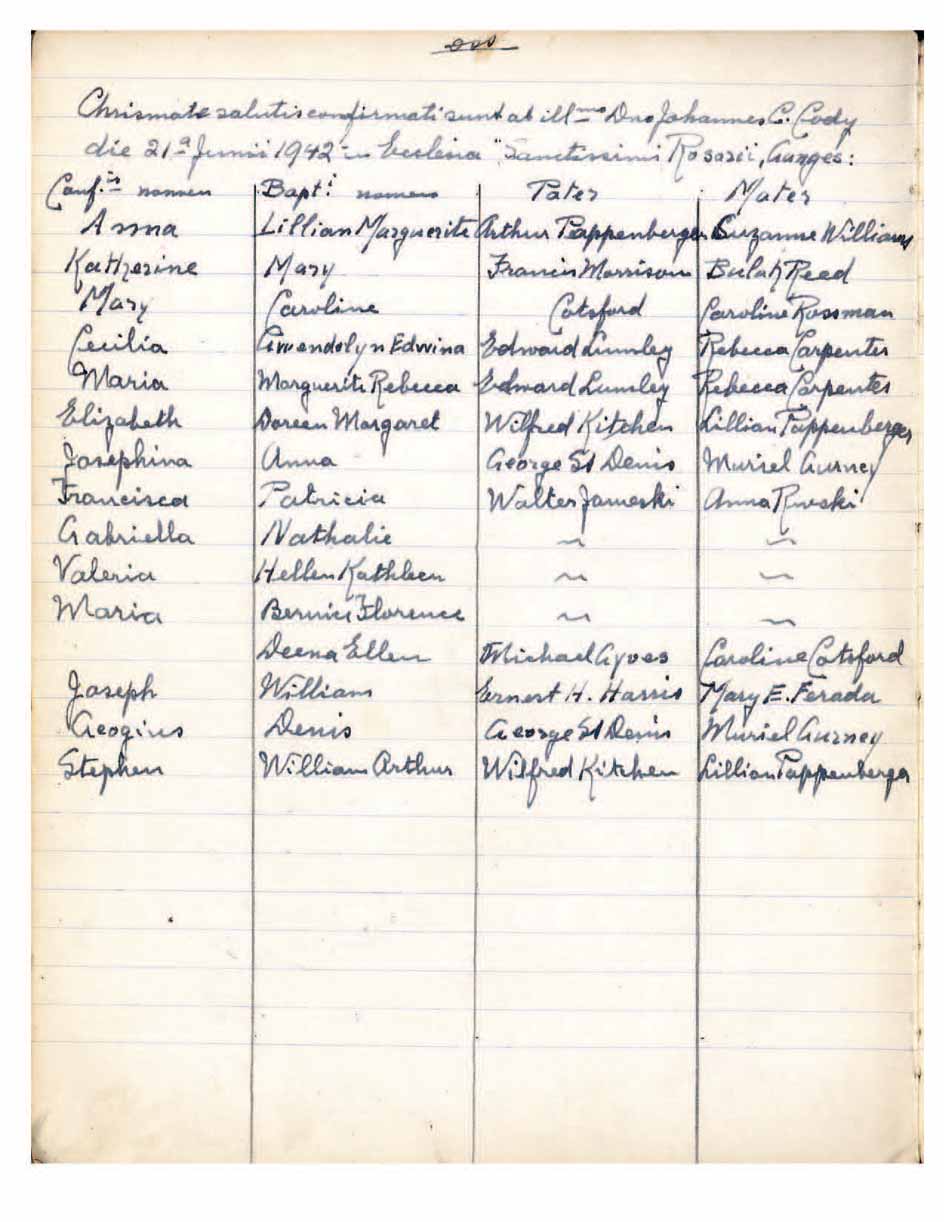 Chrismate salutis confirmati sunt ab ill-mo Dno Johannes C. Cody
die 21a Junii 1942 in Ecclesia "Sanctissimi Rosarii, Ganges:
Conf.is nomen Bapt.i nomen Pater Mater
Anna Lillian Marguerite Arthur Pappenberger Suzanne Williams
Katherine Mary Francis Morrison Bulah Reed
Mary Caroline Cotsford Caroline Rossman
Cecilia Gwendolyn Edwina Edward Lumley Rebecca Carpenter
Maria Marguerite Rebecca Edward Lumley Rebecca Carpenter
Elizabeth Doreen Margaret Wilfred Kitchen Lillian Pappenberger
Josephina Anna George St Denis Muriel Gurney
Francisca Patricia Walter Jameski Anna
Gabriella Nathalie ~ ~
Valeria Hellen Kathleen ~ ~
Maria Bernice Florence ~ ~
Deena Ellen Michael Gyves Caroline Cotsford
Joseph William Ernest H. Harris Mary E. Ferada
Geogius Denis George St Denis Muriel Gurney
Stephen William Arthur Wilfred Kitchen Lillian Pappenberger